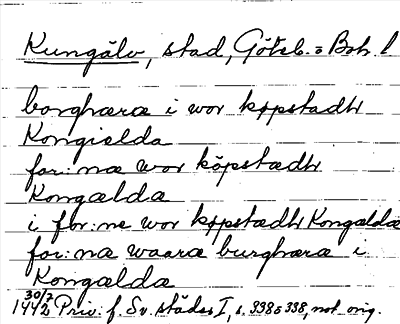 Kungälv, stad, Göteb. o Boh. l
borghæræ i wor køpstadh
Kongielda
for:næ wor köpstædh
Kongælda
i for:ne wor køpstædh Kongælda
for:næ waara burghæra i
Kongælda
30/7 1442 Priv. f. Sv. städer I, s. 338 o 338, not. orig.